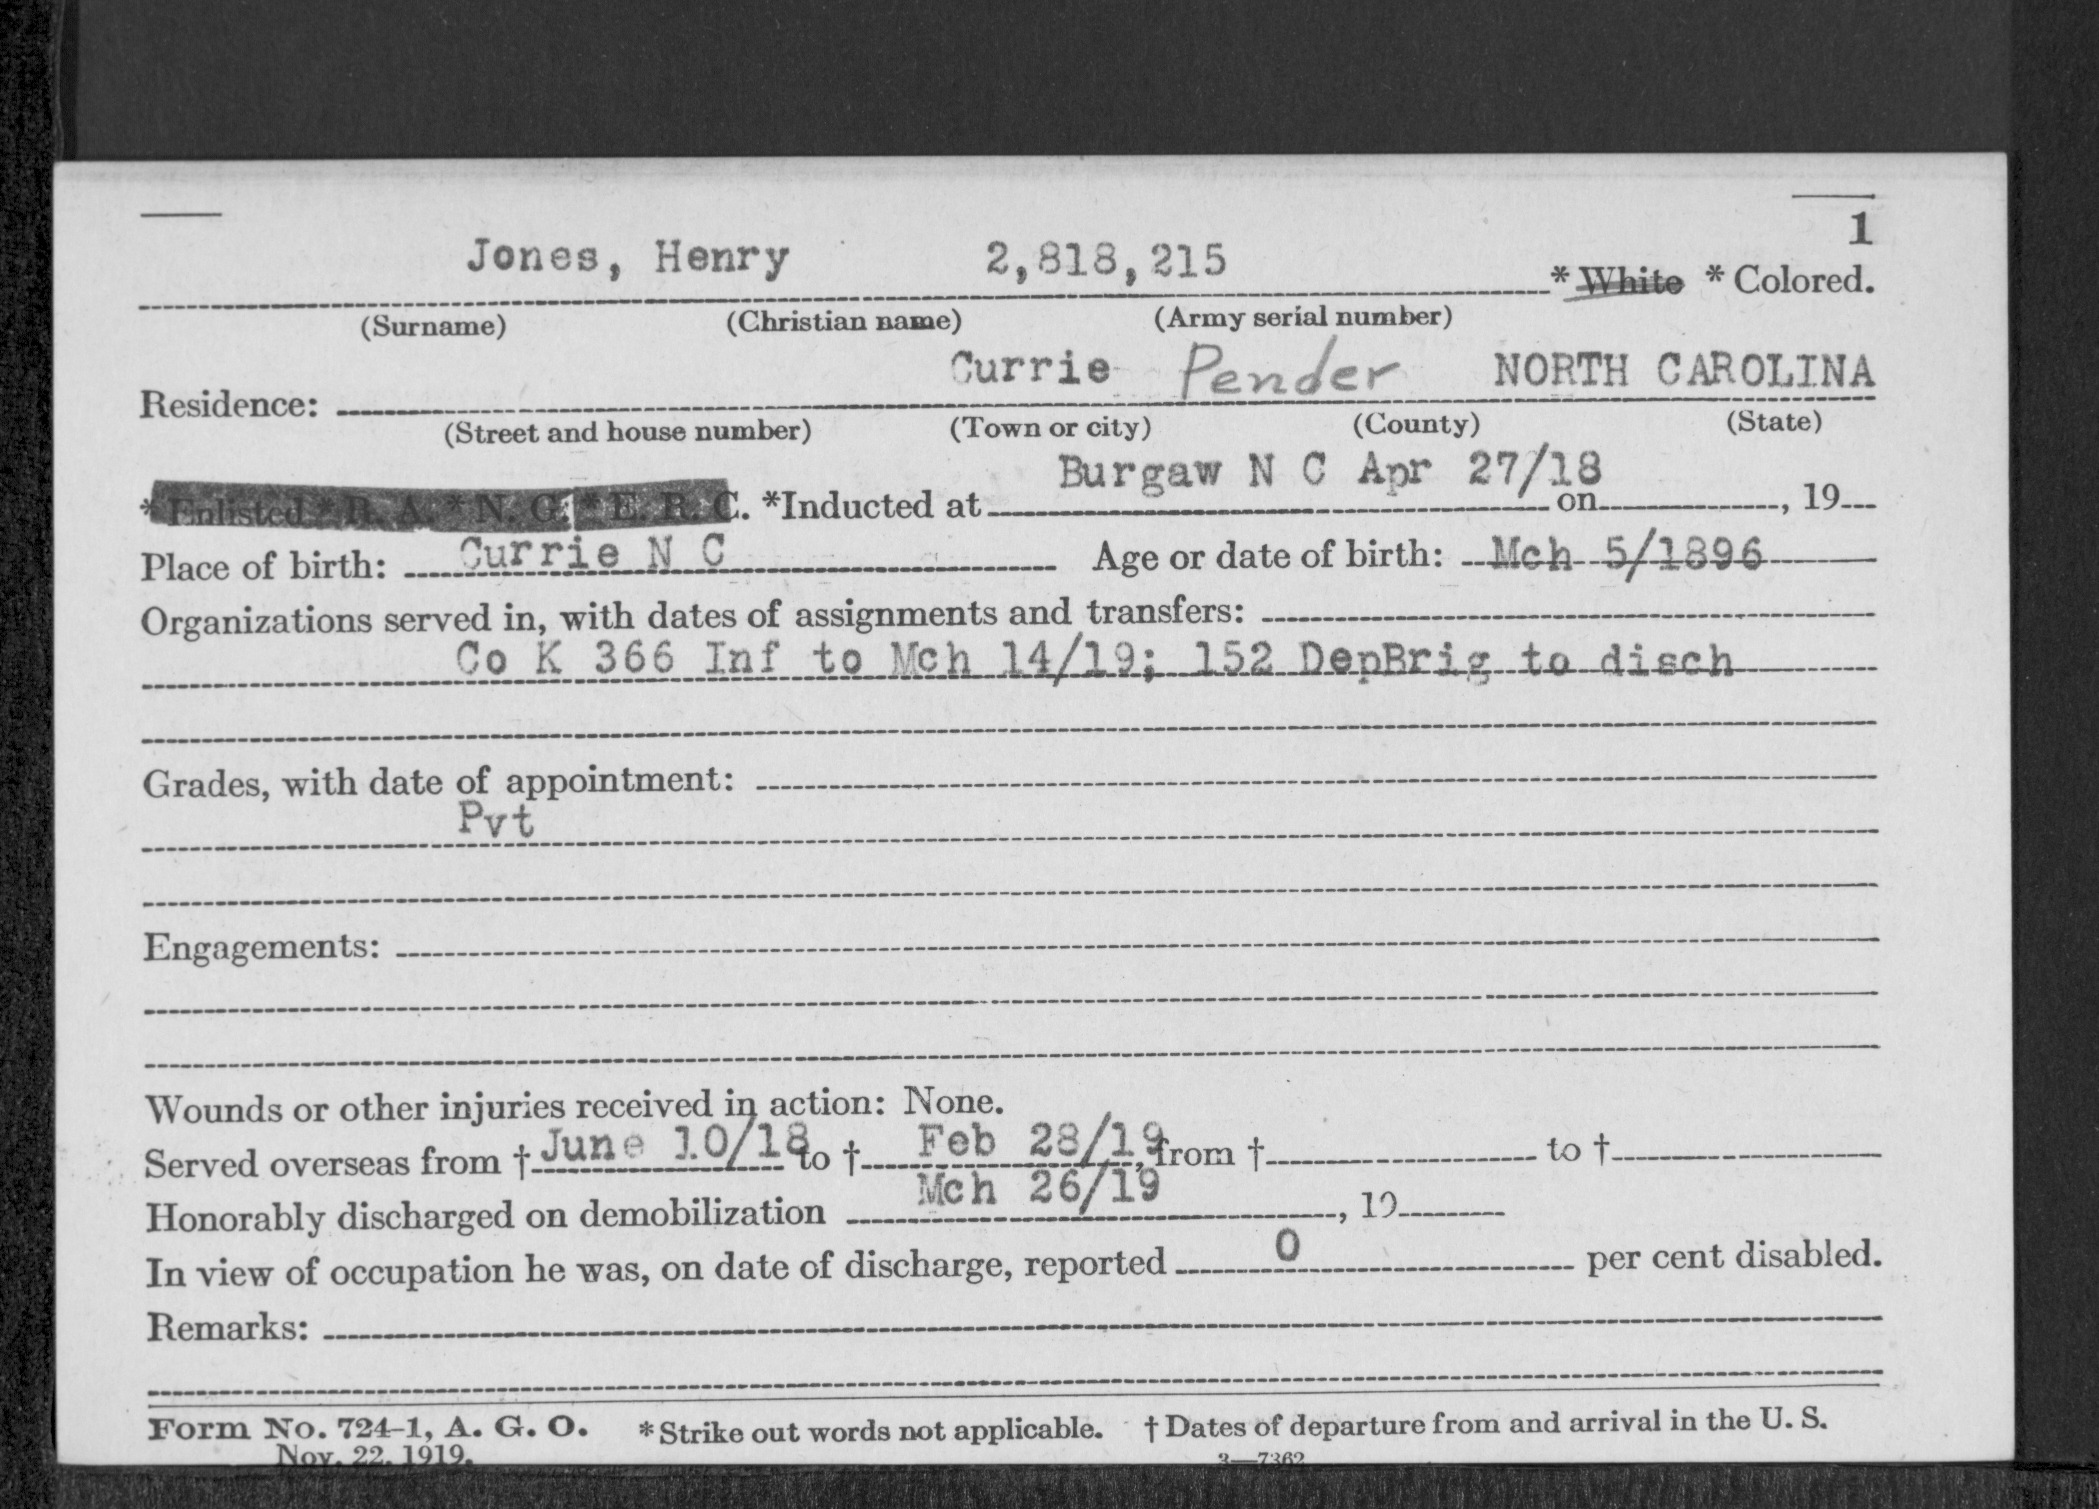 1
Jones, Henry 2,818,215 * White * Colored.
(Surname) (Christian name) (Army serial number)
Currie Pender NORTH CAROLINA
Residence:
(Street and house number) (Town or city) (County) (State)
Burgaw N C Apr 27/18
* Enlisted * R. A. * N. G. * E. R. C. *Inducted at on , 19
Place of birth: Currie N C Age or date of birth: Mch 5/1896
Organizations served in, with dates of assignments and transfers:
Co K 366 Inf to Mch 14/19; 152 DepBrig to disch
Grades, with date of appointment:
Pvt
Engagements:
Wounds or other injuries received in action: None.
Served overseas from † June 10/18 to † Feb 28/19, from † to †
Mch 26/19
Honorably discharged on demobilization , 19
In view of occupation he was, on date of discharge, reported 0 per cent disabled.
Remarks:
Form No. 724-1, A. G. O. * Strike out words not applicable. † Dates of departure from and arrival in the U. S.
Nov. 22, 1919. 3—7362